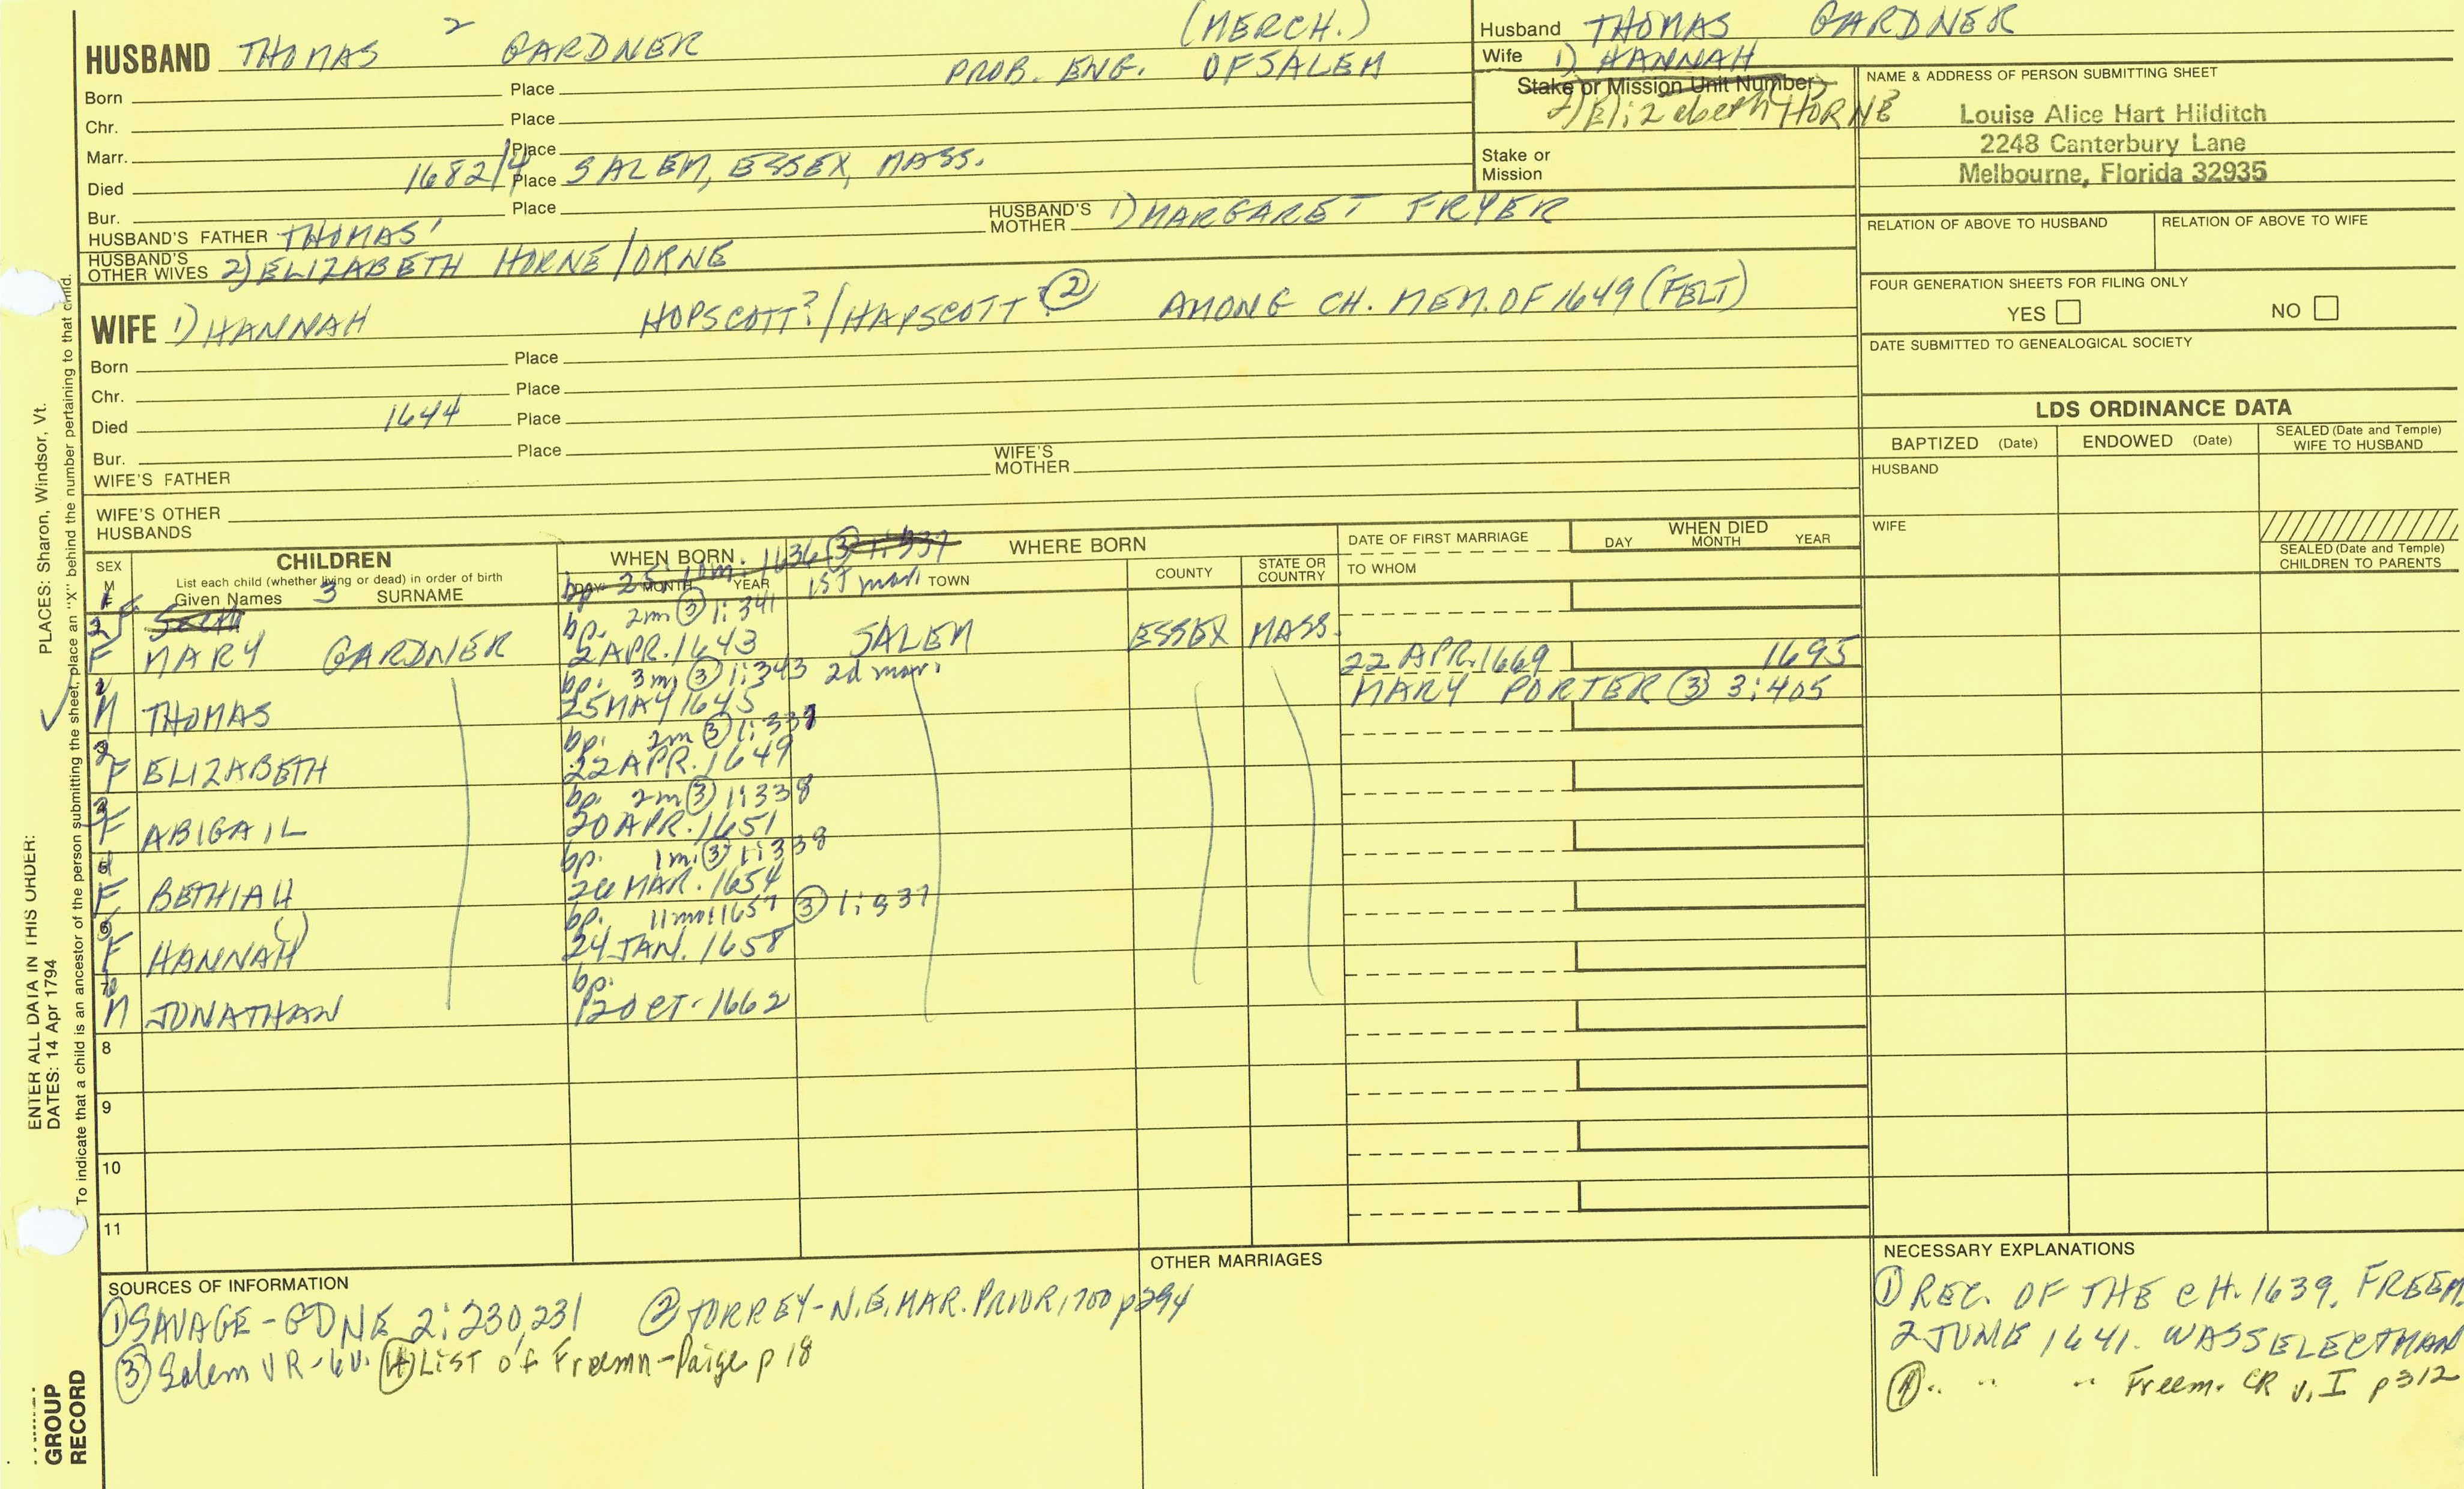 HUSBAND THOMAS 2 GARDNER (MERCH.)
PROB. ENG. OF SALEM
Born Place
Chr. Place
Marr. Place
Died 1682/4 Place SALEM, ESSEX, MASS.
Bur. Place
HUSBAND'S FATHER THOMAS' HUSBAND'S MOTHER 1) MARGARET FRYER
HUSBAND'S OTHER WIVES 2) ELIZABETH HORNE/ORNE
WIFE 1) HANNAH HOPSCOTT?/HAPSCOTT ② AMONG CH. MEM. OF 1649 (FELT)
Born Place
Chr. Place
Died 1644 Place
Bur. Place
WIFE'S FATHER WIFE'S MOTHER
WIFE'S OTHER HUSBANDS
Husband THOMAS GARDNER
Wife 1) HANNAH
Stake or Mission Unit Number
2) Elizabeth HORNE
Stake or Mission
NAME & ADDRESS OF PERSON SUBMITTING SHEET
Louise Alice Hart Hilditch
2248 Canterbury Lane
Melbourne, Florida 32935
RELATION OF ABOVE TO HUSBAND RELATION OF ABOVE TO WIFE
FOUR GENERATION SHEETS FOR FILING ONLY
YES NO
DATE SUBMITTED TO GENEALOGICAL SOCIETY
LDS ORDINANCE DATA
BAPTIZED (Date) ENDOWED (Date) SEALED (Date and Temple) WIFE TO HUSBAND
HUSBAND
WIFE
SEALED (Date and Temple) CHILDREN TO PARENTS
SEX M F
CHILDREN
List each child (whether living or dead) in order of birth
Given Names 3 SURNAME
WHEN BORN
DAY MONTH YEAR
WHERE BORN
TOWN COUNTY STATE OR COUNTRY
DATE OF FIRST MARRIAGE
TO WHOM
WHEN DIED
DAY MONTH YEAR
bp 25 10m. 1636 ③ 1:337 1st mar.
bp. 2m ③ 1:341
F MARY GARDNER 2 APR. 1643 SALEM ESSEX MASS.
bp. 3m ③ 1:343 2d mar.
M THOMAS 25 MAY 1645 22 APR. 1669 1695
MARY PORTER ③ 3:405
bp. 2m ③ 1:337
F ELIZABETH 22 APR. 1649
bp. 2m ③ 1:338
F ABIGAIL 20 APR. 1651
bp. 1m. ③ 1:338
F BETHIAH 26 MAR. 1654
bp. 11mo: 1657 ③ 1:337
F HANNAH 24 JAN. 1658
bp.
M JONATHAN 12 OCT. 1662
8
9
10
11
SOURCES OF INFORMATION
① SAVAGE-GDNE 2:230,231 ② TORREY-N.E. MAR. PRIOR 1700 p294
③ Salem VR-6v. ④ LIST of Freemn-Paige p 18
OTHER MARRIAGES
NECESSARY EXPLANATIONS
① REC. OF THE CH. 1639. FREEM.
2 JUNE 1641. WAS SELECTMAN
④ " " " Freem. CR v. I p312
PLACES: Sharon, Windsor, Vt.
ENTER ALL DATA IN THIS ORDER:
DATES: 14 Apr 1794
To indicate that a child is an ancestor of the person submitting the sheet, place an "X" behind the number pertaining to that child.
GROUP
RECORD